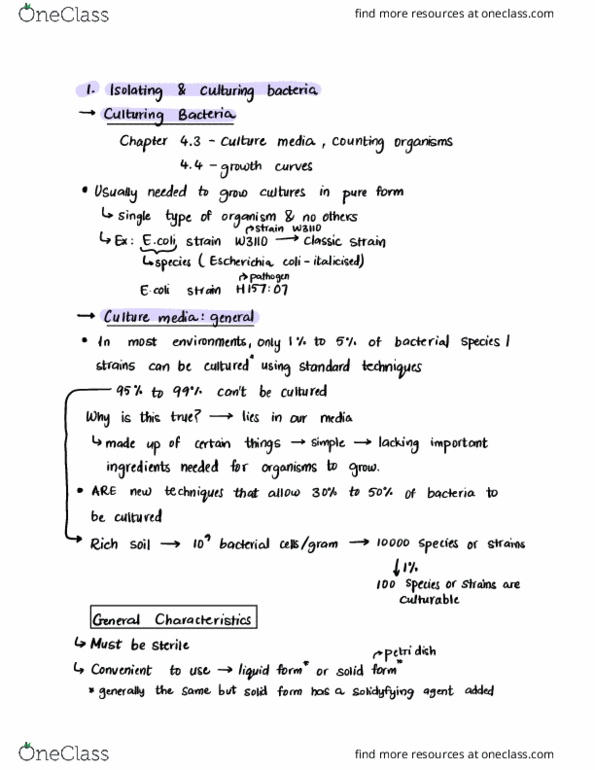 OneClass
find more resources at oneclass.com
1. Isolating & culturing bacteria
→ Culturing Bacteria
Chapter 4.3 - culture media, counting organisms
4.4 - growth curves
• Usually needed to grow cultures in pure form
↳ single type of organism & no others
↱ strain W3110
↳ Ex: E.coli strain W3110 → classic strain
↳ species (Escherichia coli - italicised)
↱ pathogen
E.coli strain H157:07
→ Culture media: general
• In most environments, only 1% to 5% of bacterial species /
strains can be cultured* using standard techniques
95% to 99% can't be cultured
Why is this true? → lies in our media
↳ made up of certain things → simple → lacking important
ingredients needed for organisms to grow.
• ARE new techniques that allow 30% to 50% of bacteria to
be cultured
Rich soil → 10⁹ bacterial cells/gram → 10000 species or strains
↓1%
100 species or strains are
culturable
General Characteristics
↳ Must be sterile
↱ petri dish
↳ Convenient to use → liquid form* or solid form*
* generally the same but solid form has a solidyfying agent added
OneClass
find more resources at oneclass.com